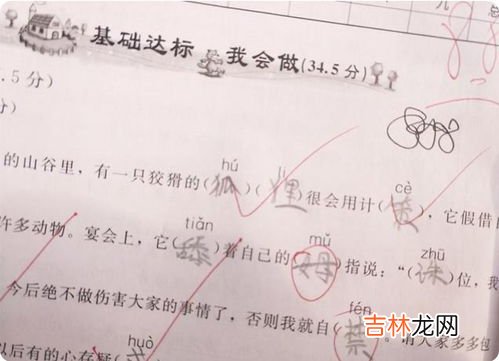 基础达标 我会做(34.5分)
.5分)
分)
hú lí cè
的山谷里,有一只狡猾的(狐)(狸)很会用计( ),它假借
tiǎn mǔ zhū
许多动物。宴会上,它(舔)着自己的(姆)指说:“(诛)位,我
fén
今后绝不做伤害大家的事情了,否则我就自(禁
huò
以后有的心存疑(
吉林龙网